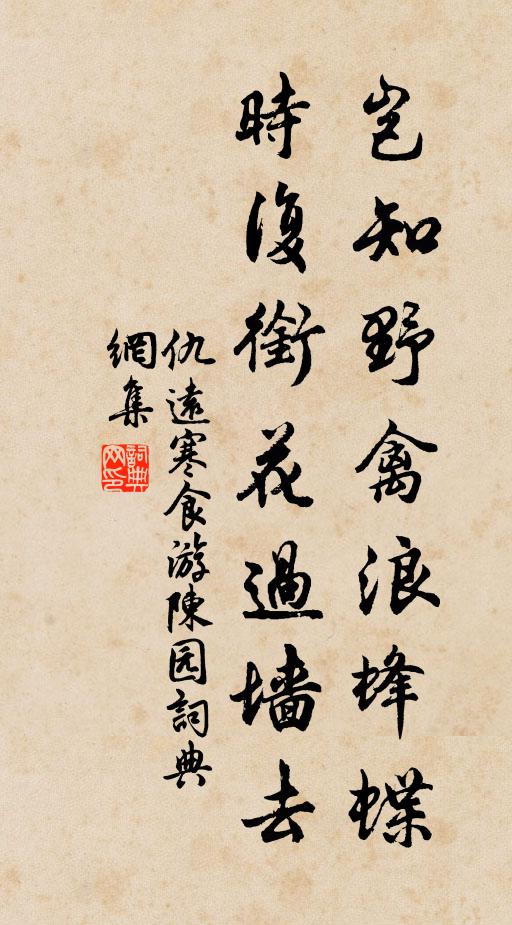 岂知野禽浪蜂蝶
時復銜花過墙去
仇遠寒食游陳园詞典
網集
詞典网印